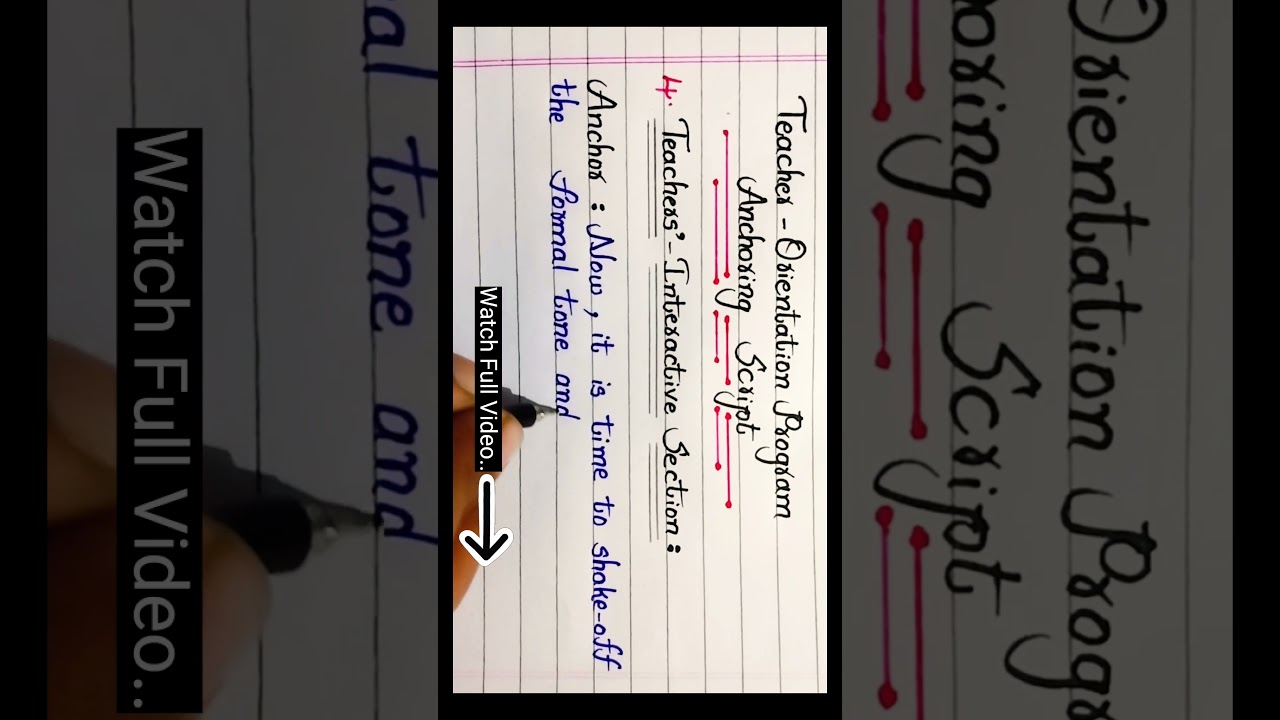 Teacher-Orientation Program
Anchoring Script
4. Teachers'-Interactive Section:
Anchor: Now, it is time to shake-off
the formal tone and
Watch Full Video..